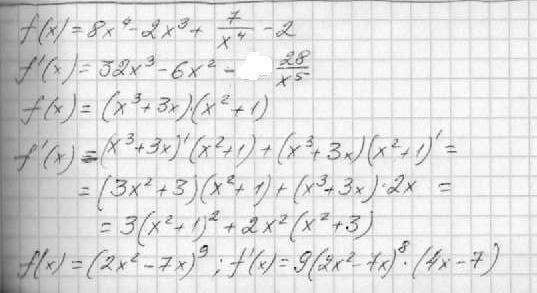 f(x) = 8x⁴ - 2x³ + 7/x⁴ - 2
f'(x) = 32x³ - 6x² - 28/x⁵
f(x) = (x³+3x)·(x²+1)
f'(x) = (x³+3x)'(x²+1) + (x³+3x)(x²+1)' =
= (3x²+3)(x²+1) + (x³+3x)·2x =
= 3(x²+1)² + 2x²(x²+3)
f(x) = (2x² - 7x)⁹; f'(x) = 9(2x² - 7x)⁸·(4x - 7)